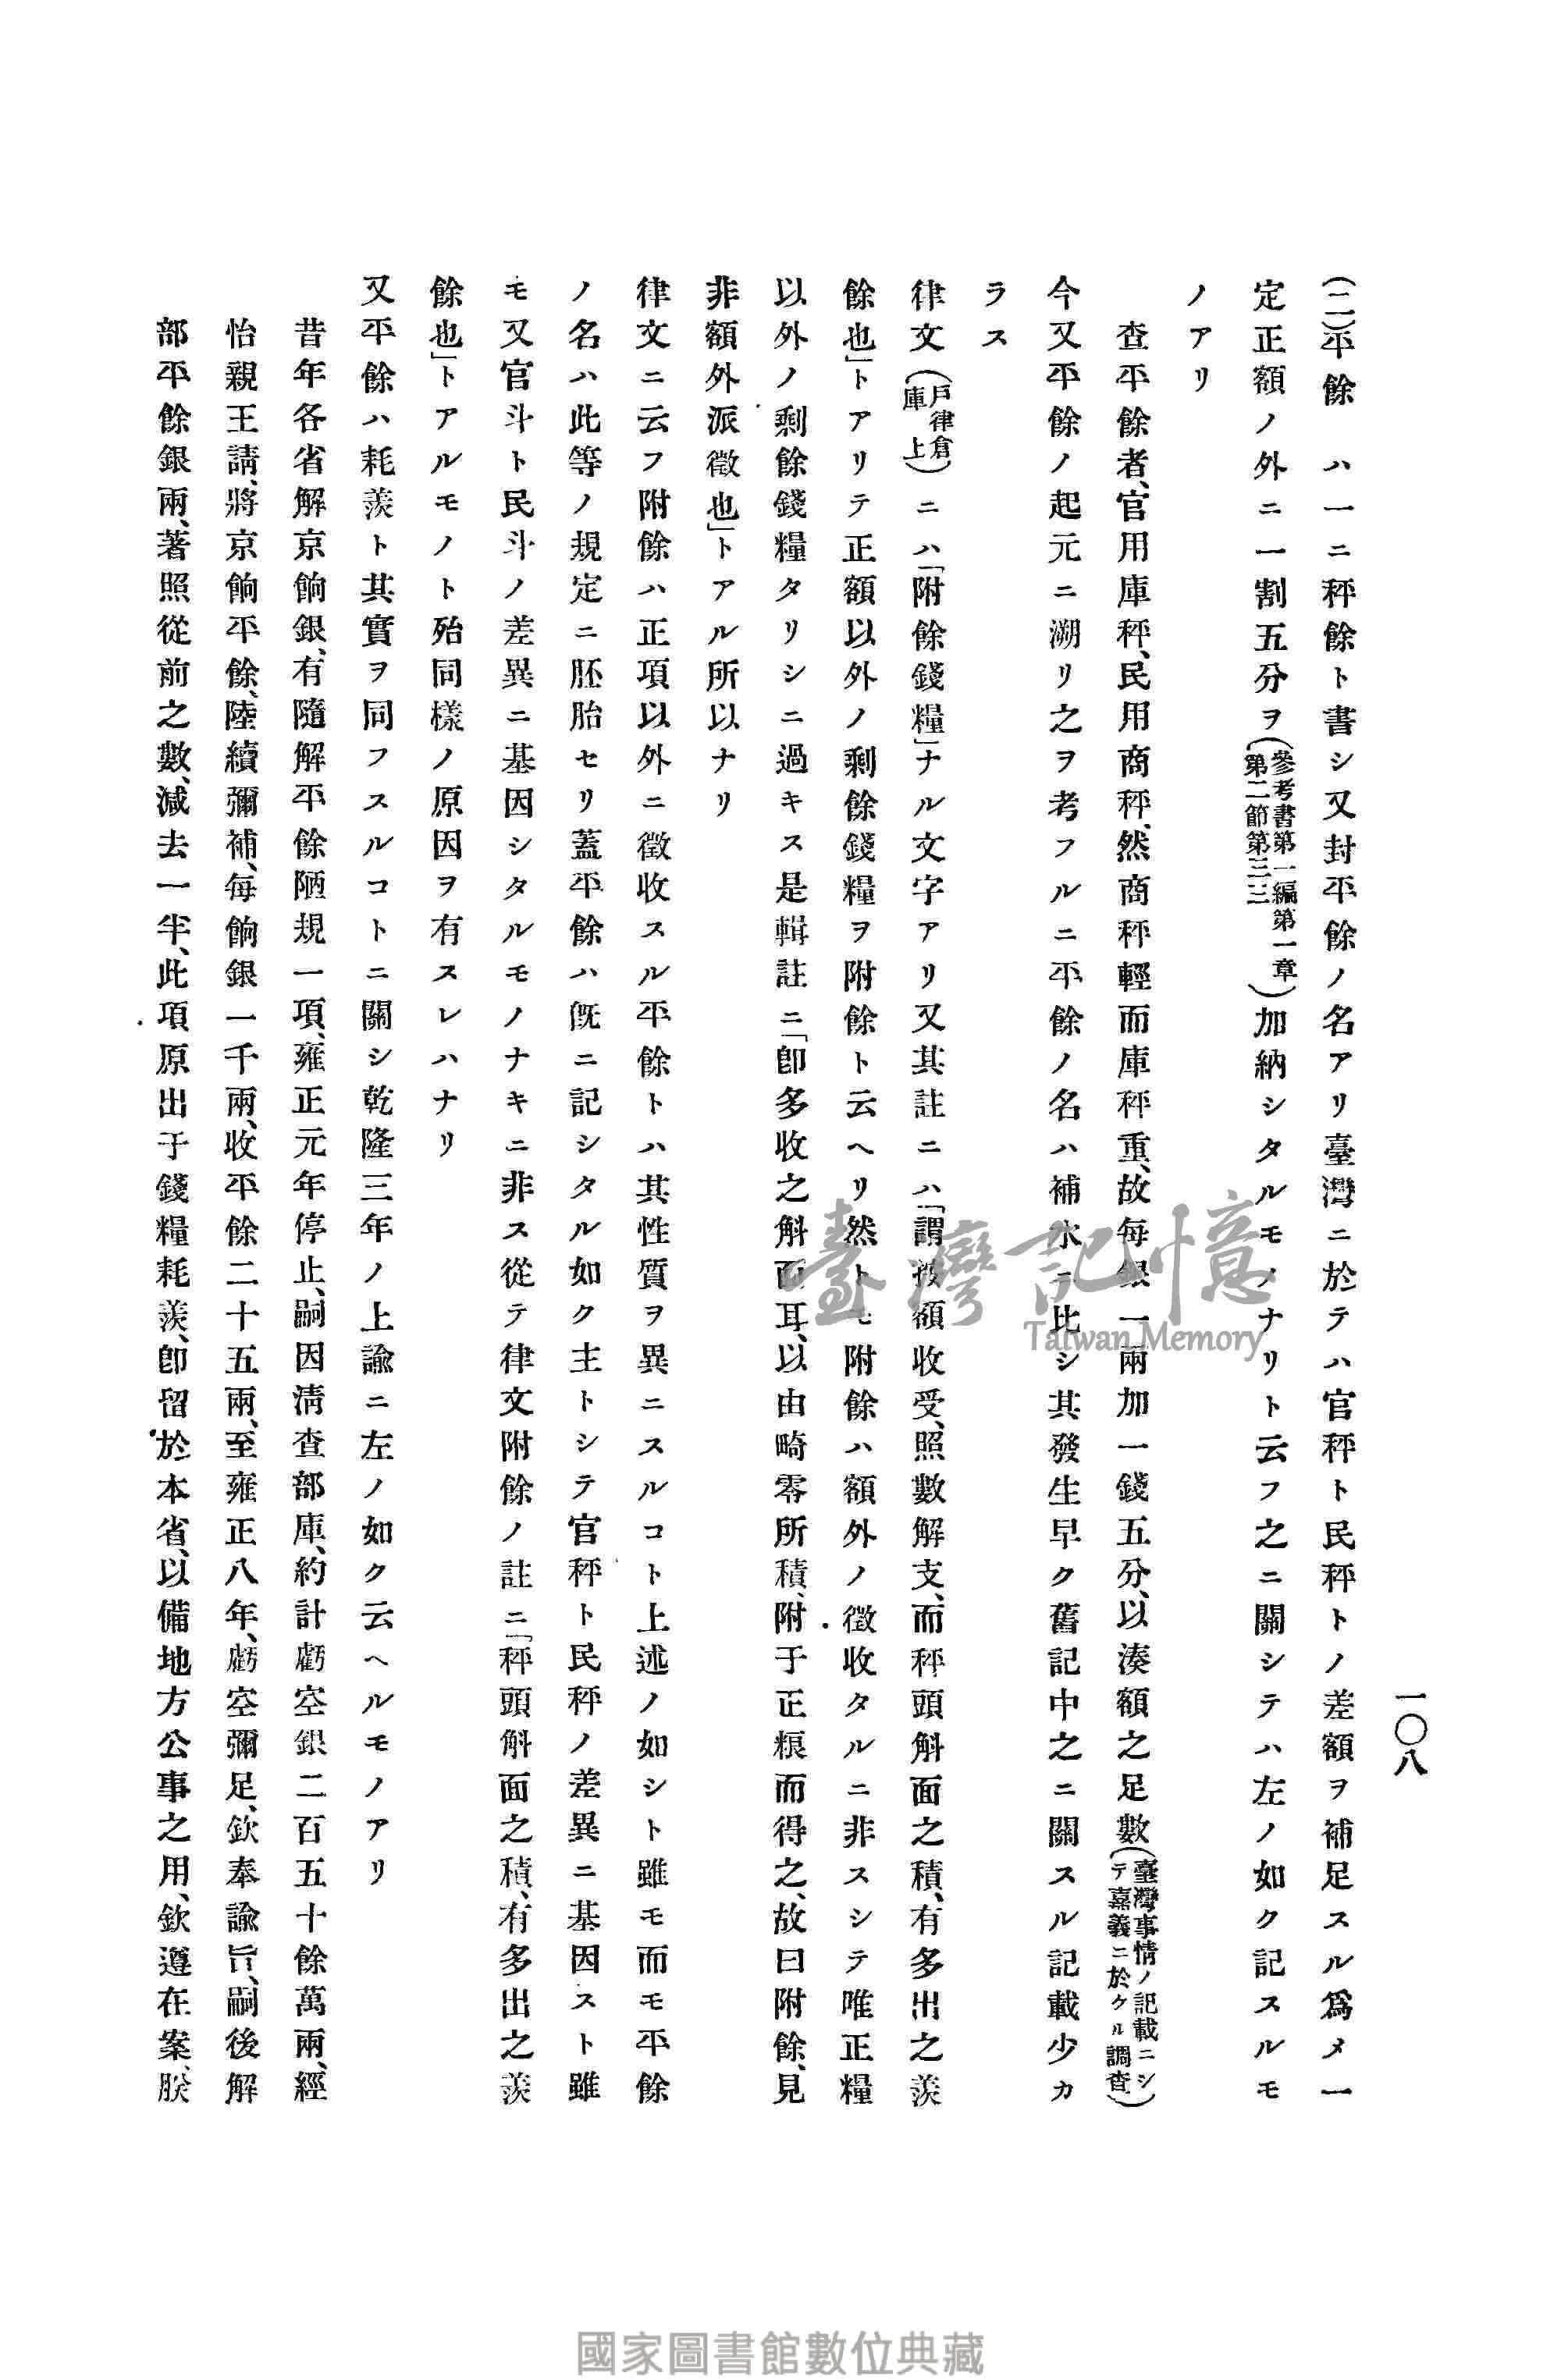 一〇八
(二)平餘 ハ一ニ秤餘ト書シ又封平餘ノ名アリ臺灣ニ於テハ官秤ト民秤トノ差額ヲ補足スル爲メ一
定正額ノ外ニ一割五分ヲ(參考書第一編第一章第二節第三三)加納シタルモノナリト云フ之ニ關シテハ左ノ如ク記スルモ
ノアリ
查平餘者、官用庫秤、民用商秤、然商秤輕而庫秤重、故每銀一兩加一錢五分、以湊額之足數(臺灣事情ノ記載ニシテ嘉義ニ於クル調查)
今又平餘ノ起元ニ溯リ之ヲ考フルニ平餘ノ名ハ補水ニ比シ其發生早ク舊記中之ニ關スル記載少カ
ラス
律文(戶律倉庫上)ニハ「附餘錢糧」ナル文字アリ又其註ニハ「謂按額收受、照數解支、而秤頭斛面之積、有多出之羨
餘也」トアリテ正額以外ノ剩餘錢糧ヲ附餘ト云ヘリ然トモ附餘ハ額外ノ徵收タルニ非スシテ唯正糧
以外ノ剩餘錢糧タリシニ過キス是輯註ニ「卽多收之斛面耳、以由畸零所積、附于正粮而得之、故曰附餘、見
非額外派徵也」トアル所以ナリ
律文ニ云フ附餘ハ正項以外ニ徵收スル平餘トハ其性質ヲ異ニスルコト上述ノ如シト雖モ而モ平餘
ノ名ハ此等ノ規定ニ胚胎セリ蓋平餘ハ旣ニ記シタル如ク主トシテ官秤ト民秤ノ差異ニ基因スト雖
モ又官斗ト民斗ノ差異ニ基因シタルモノナキニ非ス從テ律文附餘ノ註ニ「秤頭斛面之積、有多出之羨
餘也」トアルモノト殆同樣ノ原因ヲ有スレハナリ
又平餘ハ耗羨ト其實ヲ同フスルコトニ關シ乾隆三年ノ上諭ニ左ノ如ク云ヘルモノアリ
昔年各省解京餉銀、有隨解平餘陋規一項、雍正元年停止、嗣因淸查部庫、約計虧空銀二百五十餘萬兩、經
怡親王請、將京餉平餘、陸續彌補、每餉銀一千兩、收平餘二十五兩、至雍正八年、虧空彌足、欽奉諭旨、嗣後解
部平餘銀兩、著照從前之數、減去一半、此項原出于錢糧耗羨、卽留於本省、以備地方公事之用、欽遵在案、朕
臺灣記憶
Taiwan Memory
國家圖書館數位典藏